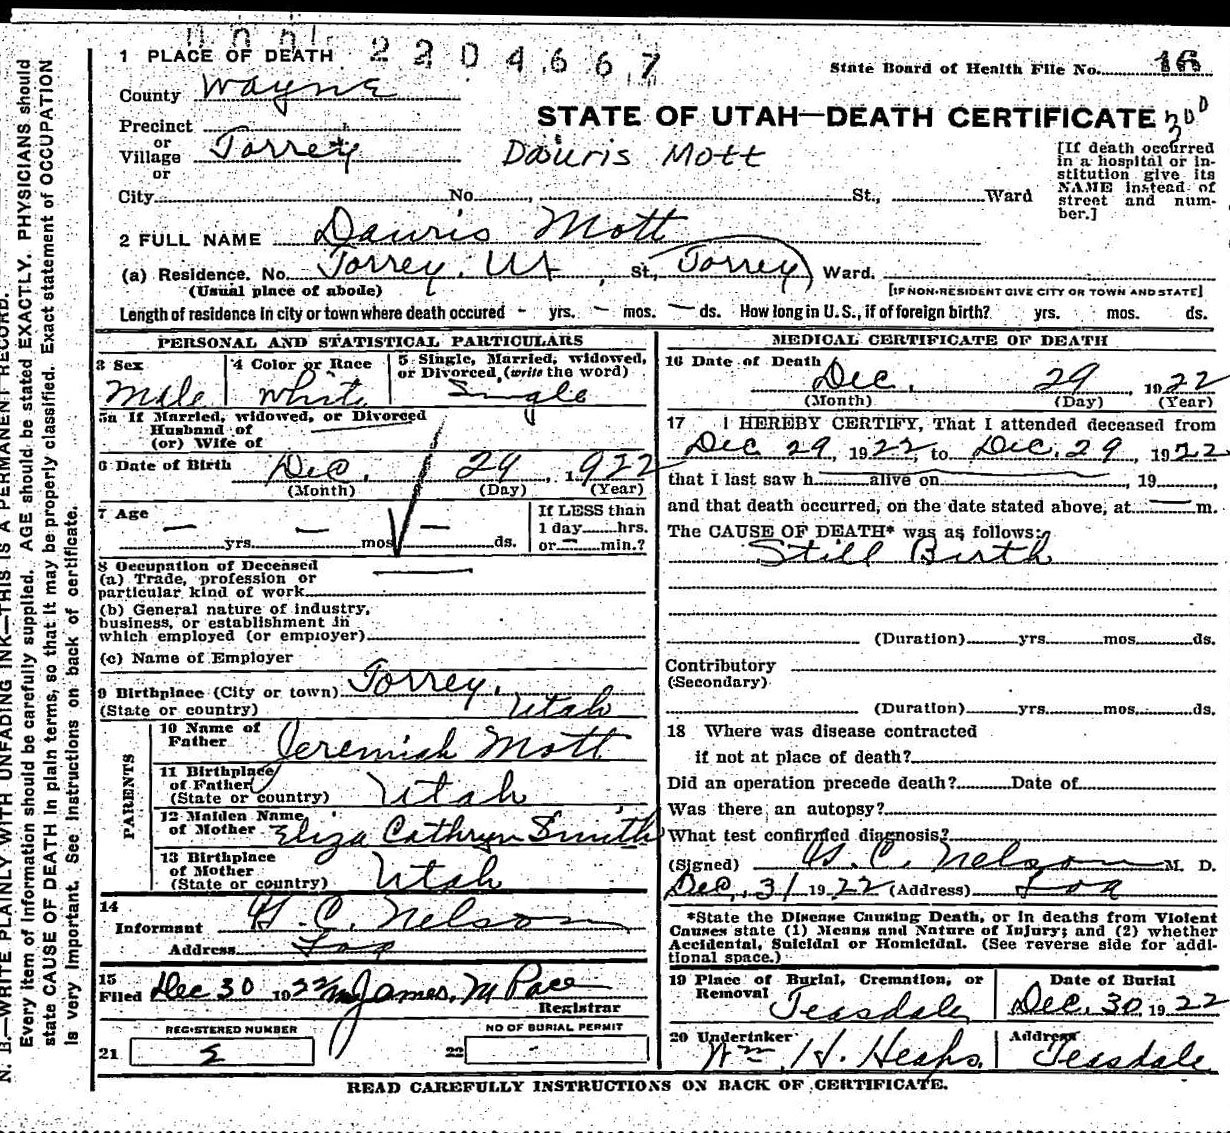 1 PLACE OF DEATH 2204667
State Board of Health File No. 16
County Wayne
STATE OF UTAH—DEATH CERTIFICATE 300
Precinct
or
Village Torrey
or
Dauris Mott
[If death occurred in a hospital or institution give its NAME instead of street and number.]
City No. St., Ward
2 FULL NAME Dauris Mott
(a) Residence. No. Torrey, Ut St., Torrey Ward.
(Usual place of abode) [IF NON-RESIDENT GIVE CITY OR TOWN AND STATE]
Length of residence in city or town where death occured - yrs. — mos. — ds. How long in U. S., if of foreign birth? yrs. mos. ds.
PERSONAL AND STATISTICAL PARTICULARS
3 Sex
Male
4 Color or Race
White
5 Single, Married, widowed, or Divorced, (write the word)
Single
5a If Married, widowed, or Divorced
Husband of
(or) Wife of
6 Date of Birth Dec. 29, 1922
(Month) (Day) (Year)
7 Age
— yrs. — mos. — ds.
If LESS than
1 day hrs.
or — min.?
8 Occupation of Deceased
(a) Trade, profession or
particular kind of work
(b) General nature of industry,
business, or establishment in
which employed (or employer)
(c) Name of Employer
9 Birthplace (City or town) Torrey,
(State or country) Utah
PARENTS
10 Name of
Father Jeremiah Mott
11 Birthplace
of Father
(State or country) Utah
12 Maiden Name
of Mother Eliza Cathryn Smith
13 Birthplace
of Mother
(State or country) Utah
14
Informant H. C. Nelson
Address Loa
15
Filed Dec 30 1922 James M Pace
Registrar
REGISTERED NUMBER
21
NO OF BURIAL PERMIT
22 -
MEDICAL CERTIFICATE OF DEATH
16 Date of Death
Dec. 29, 1922
(Month) (Day) (Year)
17 I HEREBY CERTIFY, That I attended deceased from
Dec 29, 1922, to Dec. 29, 1922
that I last saw h alive on , 19 ,
and that death occurred, on the date stated above, at — m.
The CAUSE OF DEATH* was as follows:
Still Birth
(Duration) yrs. mos. ds.
Contributory
(Secondary)
(Duration) yrs. mos. ds.
18 Where was disease contracted
if not at place of death?
Did an operation precede death? Date of
Was there an autopsy?
What test confirmed diagnosis?
(Signed) H. C. Nelson M. D.
Dec, 31 1922 (Address) Loa
*State the Disease Causing Death, or in deaths from Violent
Causes state (1) Means and Nature of Injury; and (2) whether
Accidental, Suicidal or Homicidal. (See reverse side for additional space.)
19 Place of Burial, Cremation, or
Removal Teasdale
Date of Burial
Dec. 30, 1922
20 Undertaker
Wm. H. Heaps.
Address
Teasdale
READ CAREFULLY INSTRUCTIONS ON BACK OF CERTIFICATE.
N. B.—WRITE PLAINLY WITH UNFADING INK—THIS IS A PERMANENT RECORD.
Every item of information should be carefully supplied. AGE should be stated EXACTLY. PHYSICIANS should
state CAUSE OF DEATH in plain terms, so that it may be properly classified. Exact statement of OCCUPATION
is very important. See instructions on back of certificate.